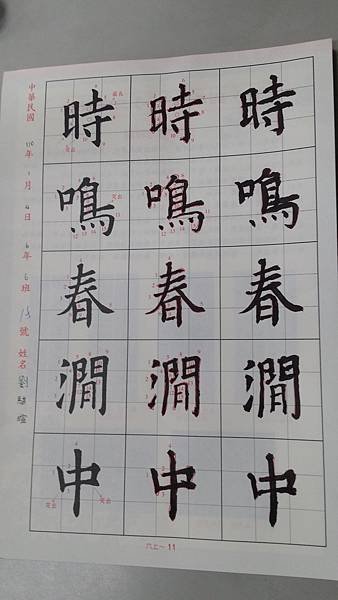 中華民國110年1月4日6年6班13號姓名劉
時時時
鳴鳴鳴
春春春
澗澗澗
中中中
六上~11